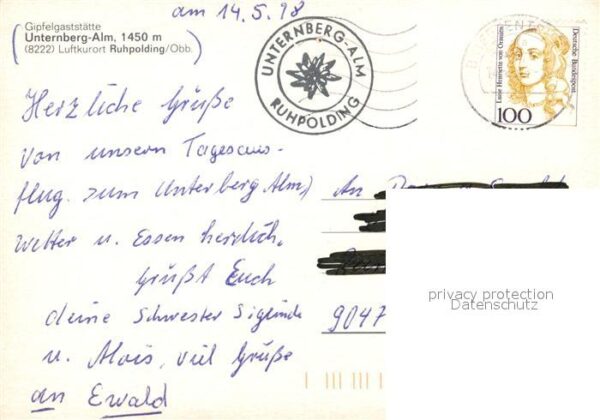 am 14.5.98
Gipfelgaststätte
Unternberg-Alm, 1450 m
(8222) Luftkurort Ruhpolding/Obb.
UNTERNBERG-ALM
RUHPOLDING
Luise Henriette von Oranien
Deutsche Bundespost
100
Herzliche Grüße
von unsern Tagesaus-
flug. zum Unterberg Alm)
Wetter u. Essen herrlich.
Grüßt Euch
deine Schwester Siglinde
u. Alois, viel Grüße
an Ewald
An
9047
privacy protection
Datenschutz